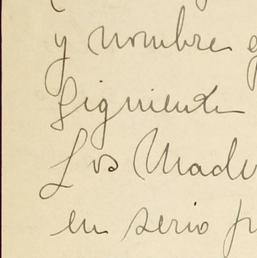 y nombre
siguiente
Los Made
en serio